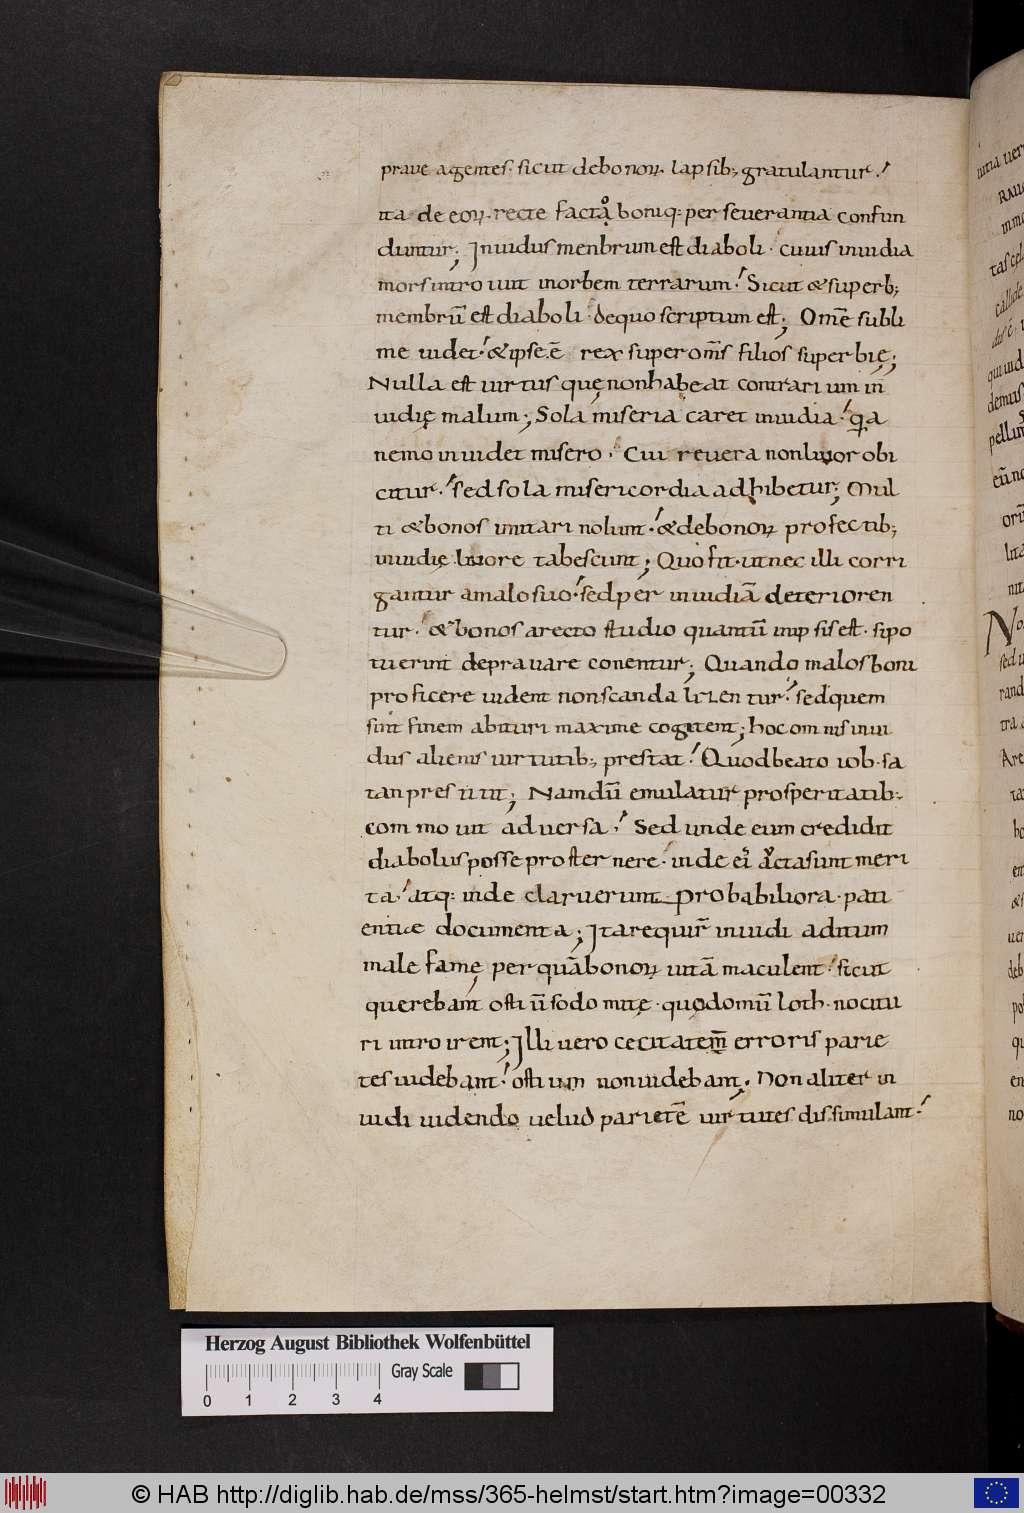 praue agentes. sicut debonoꝝ. lapsib; gratulantur.
ita de eoꝝ. recte facto boniq: perseuerantia confun
duntur; Inuidus menbrum est diaboli. cuius inuidia
mors intro iuit inorbem terrarum. Sicut & superb;
membrū est diaboli. dequo scriptum est; Om̄e subli
me uidet. & ipse ē rex super om̄s filios superbię;
Nulla est uirtus quę nonhabeat contrarium in
uidię malum; Sola miseria caret inuidia. qa
nemo inuidet misero. Cui reuera nonliuor obi
citur. sed sola misericordia adhibetur; Mul
ti & bonos imitari nolunt. & debonoꝝ profectib;
inuidię liuore tabescunt; Quo fit. ut nec illi corri
gantur amalo suo. sed per inuidiā deterioren
tur. & bonos arecto studio quantū inipsis est. sipo
tuerint deprauare conentur; Quando malos boni
proficere uident nonscandalizentur. sed quem
sint finem abituri maxime cogitent; hoc omnis inui
dus alienis uirtutib; prestat. Quod beato iob. sa
tan presitit; Nam dū emulatur prosperitatib;
commouit aduersa. Sed unde eum credidit
diabolus posse prosternere. inde ei acta sunt meri
ta. atq: inde claruerunt probabiliora. pati
entiae documenta; Ita requir̄ inuidi aditum
male famę per quā bonoꝝ uitā maculent. sicut
querebant ostiū sodomitę. quo domū loth. nocitu
ri introirent; Illi uero cecitatem erroris parie
tes uidebant. ostium nonuidebant. Non aliter in
uidi uidendo uelud parietē uirtutes dissimulant.
Herzog August Bibliothek Wolfenbüttel
Gray Scale
0 1 2 3 4
© HAB http://diglib.hab.de/mss/365-helmst/start.htm?image=00332